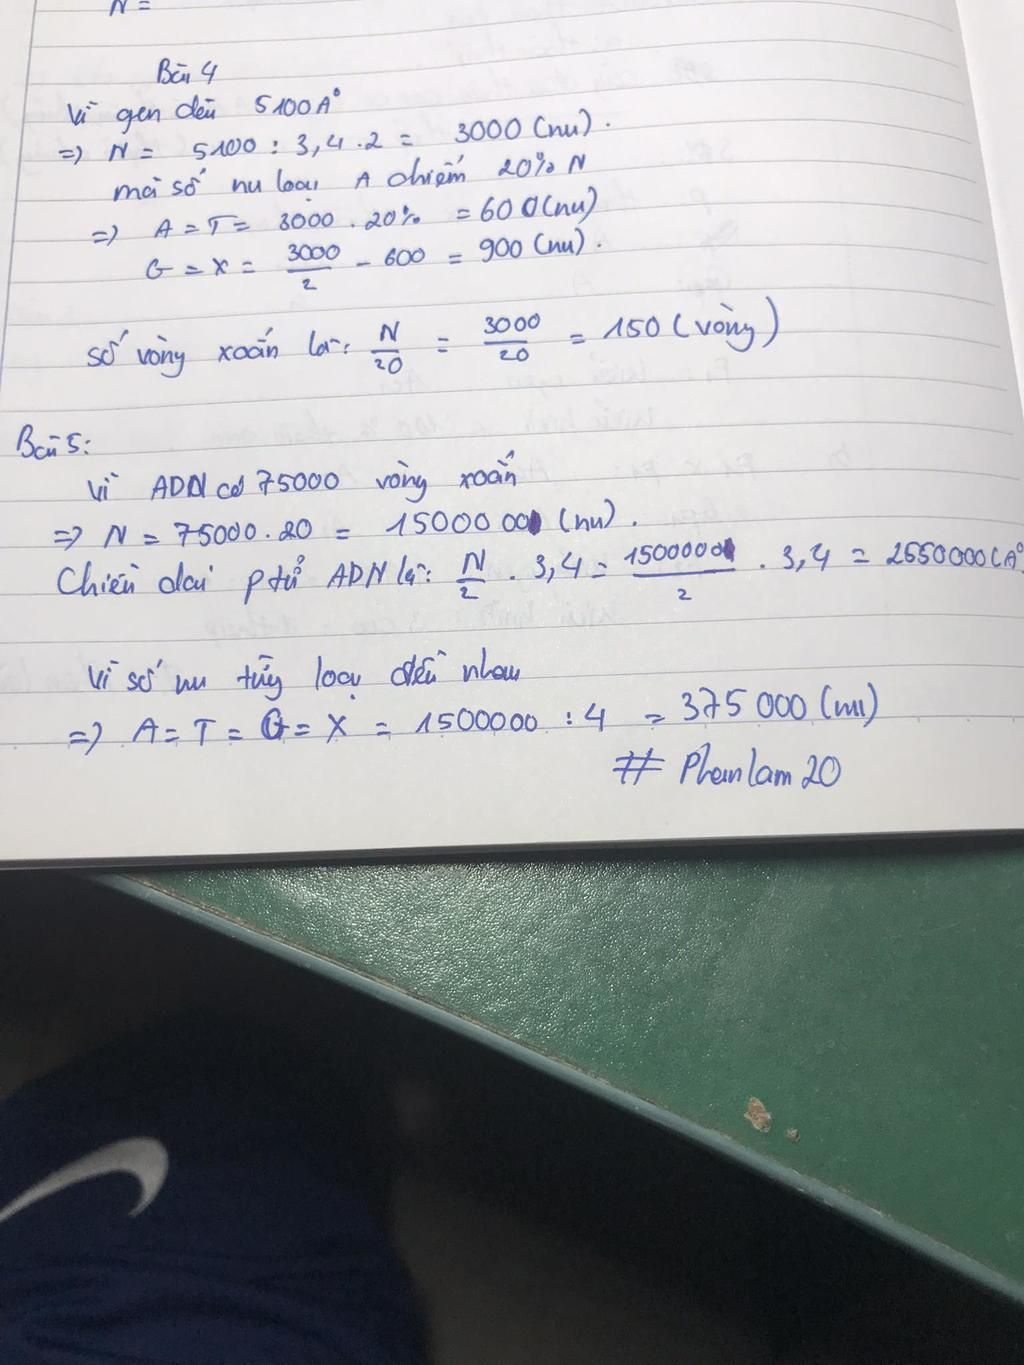 N =
Bài 4
Vì gen dài 5100A°
=> N = 5100 : 3,4 . 2 = 3000 (nu).
mà số nu loại A chiếm 20% N
=> A = T = 3000 . 20% = 600 (nu)
G = X = 3000/2 - 600 = 900 (nu).
số vòng xoắn là: N/20 = 3000/20 = 150 (vòng)
Bài 5:
Vì ADN có 75000 vòng xoắn
=> N = 75000.20 = 1500000 (nu).
Chiều dài ptử ADN là: N/2 . 3,4 = 1500000/2 . 3,4 = 2550000 (A°
Vì số nu từng loại đều nhau
=> A = T = G = X = 1500000 : 4 = 375000 (nu)
# Phamlam20